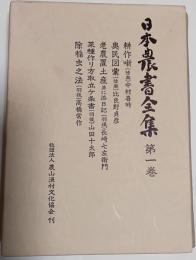 日本農書全集 第一巻
耕作噺(津軽)中村喜時
奥民図彙(津軽)比良野貞彦
老農置土産並に添日記(羽後)長崎七左衛門
菜種作り方取立ケ条書(羽後)山田十太郎
除稲虫之法(羽後)高橋常作
社団法人 農山漁村文化協会 刊